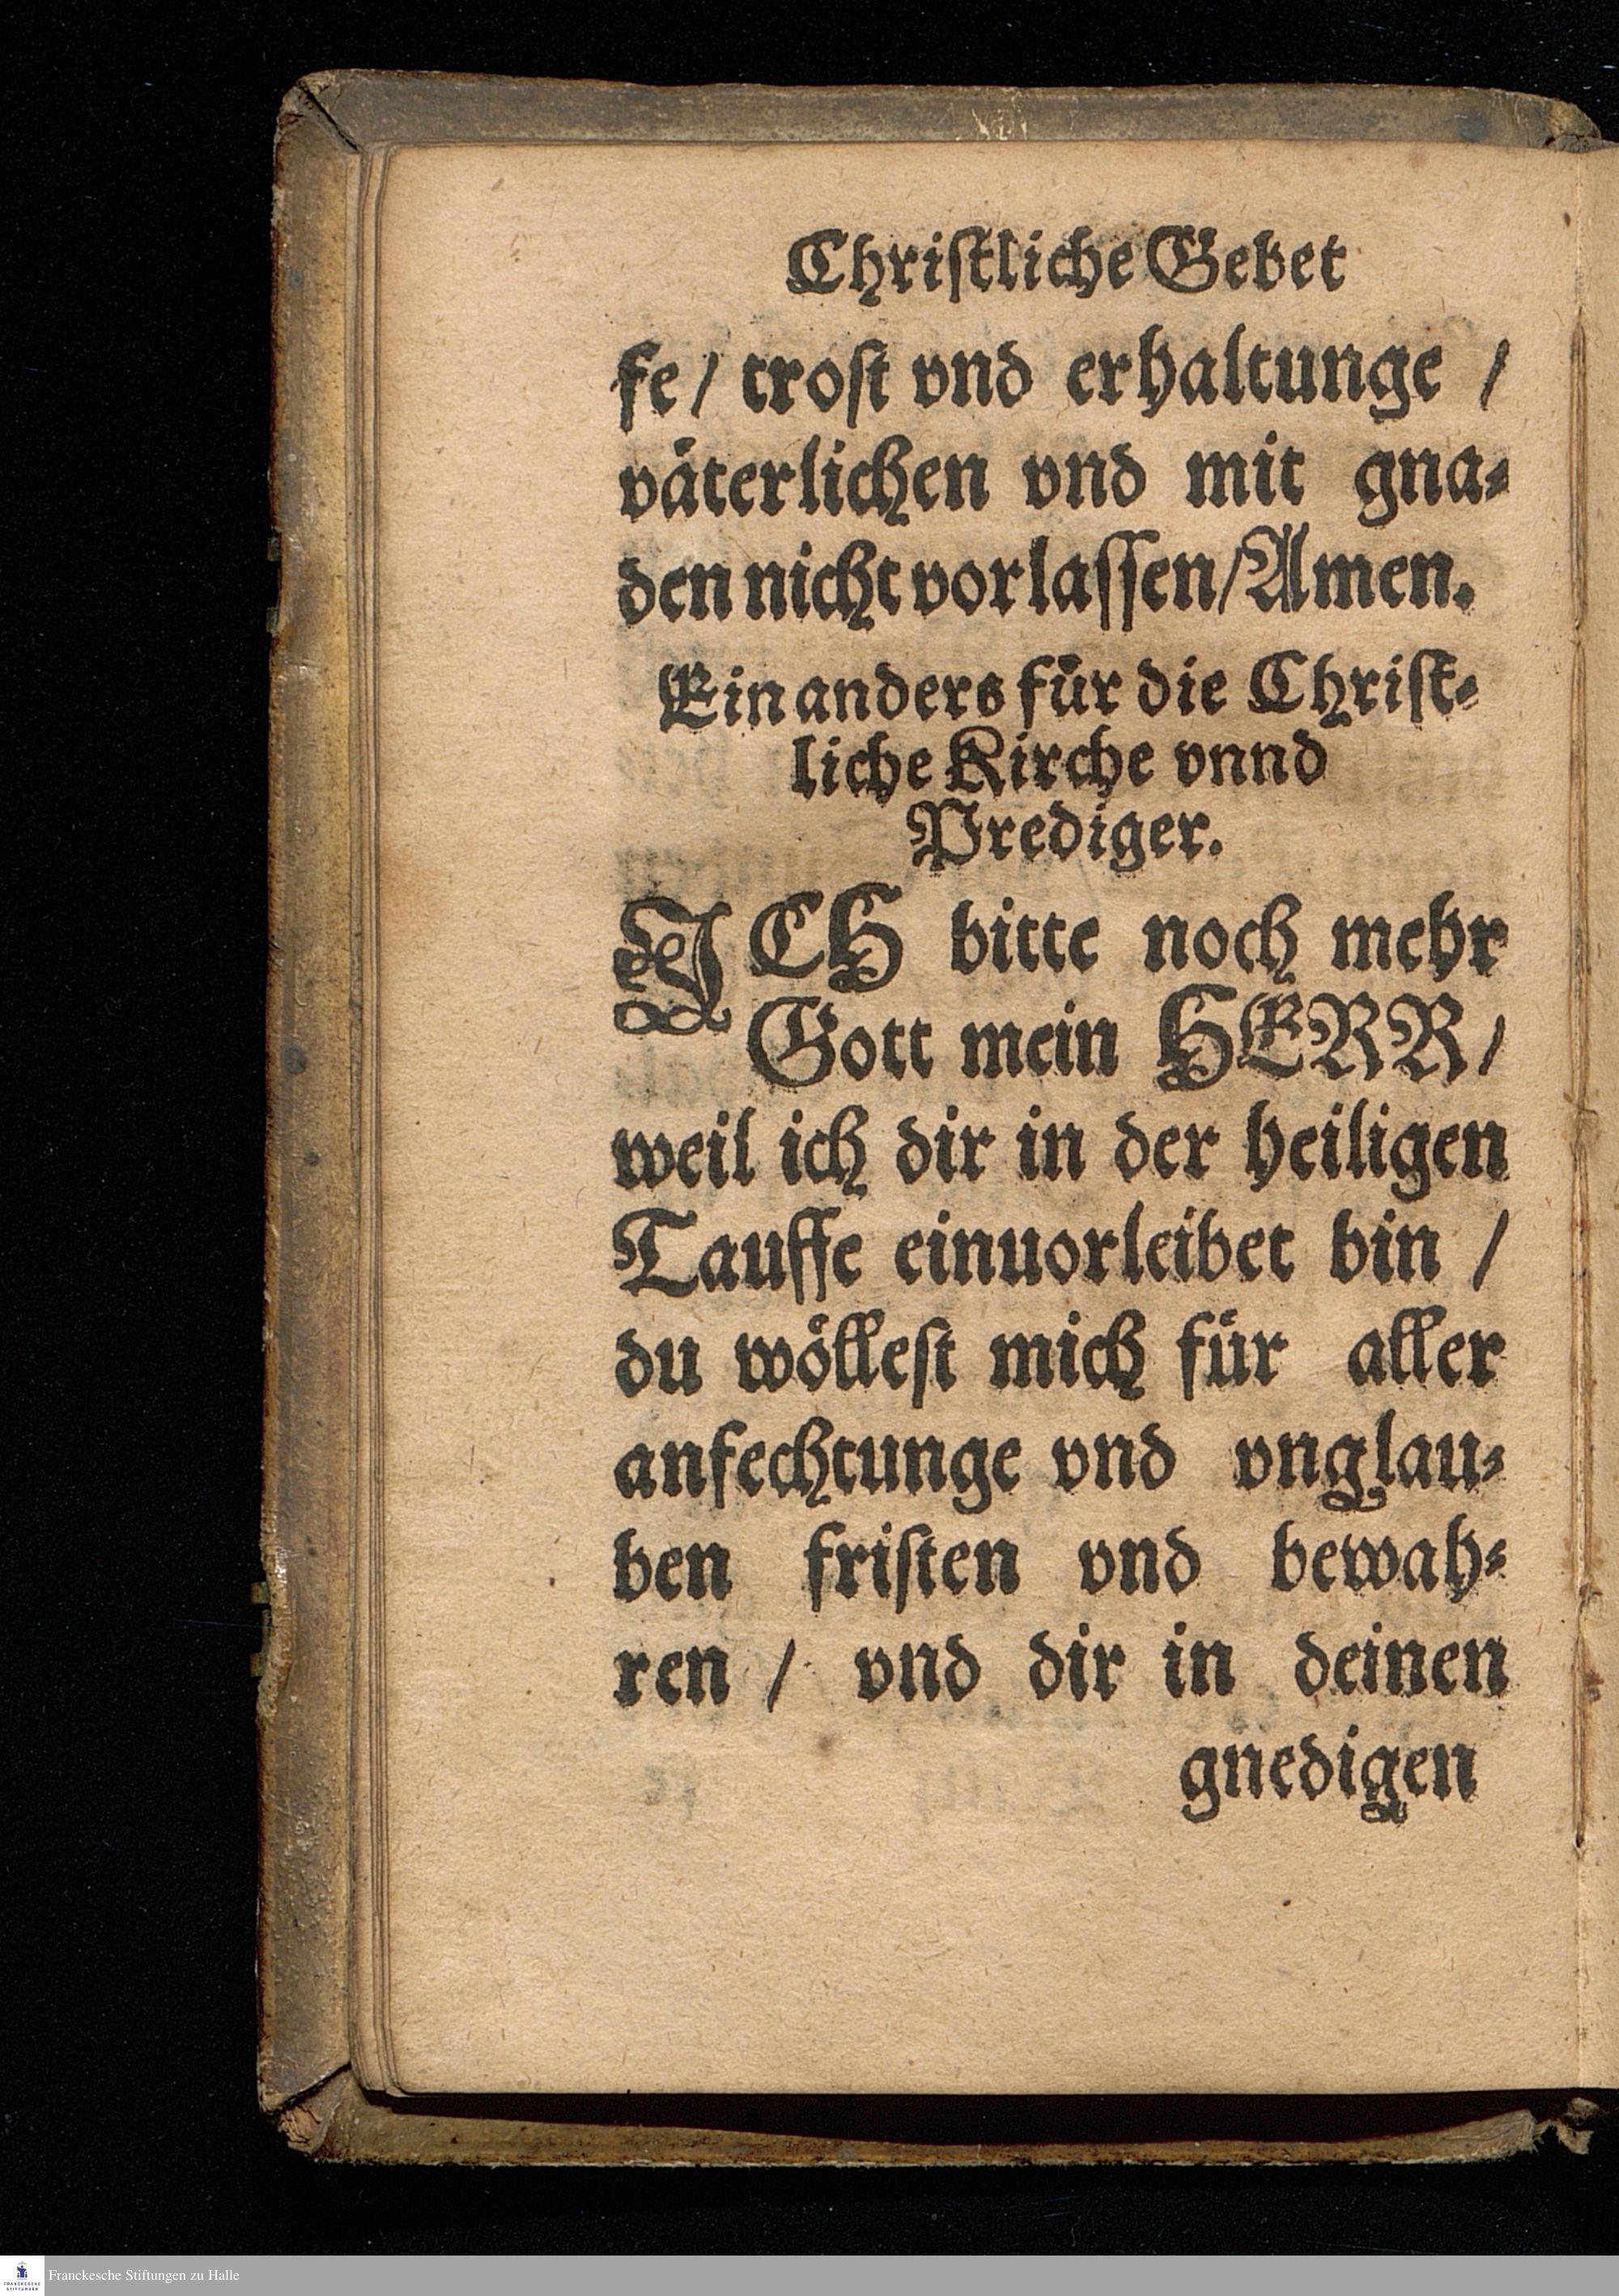 Christliche Gebet
fe / trost vnd erhaltunge /
väterlichen vnd mit gna⸗
den nicht vorlassen / Amen.
Ein anders für die Christ⸗
liche Kirche vnnd
Prediger.
ICH bitte noch mehr
Gott mein HERR /
weil ich dir in der heiligen
Tauffe einuorleibet bin /
du wöllest mich für aller
anfechtunge vnd vnglau⸗
ben fristen vnd bewah⸗
ren / vnd dir in deinen
gnedigen
FRANCKESCHE STIFTUNGEN
Franckesche Stiftungen zu Halle